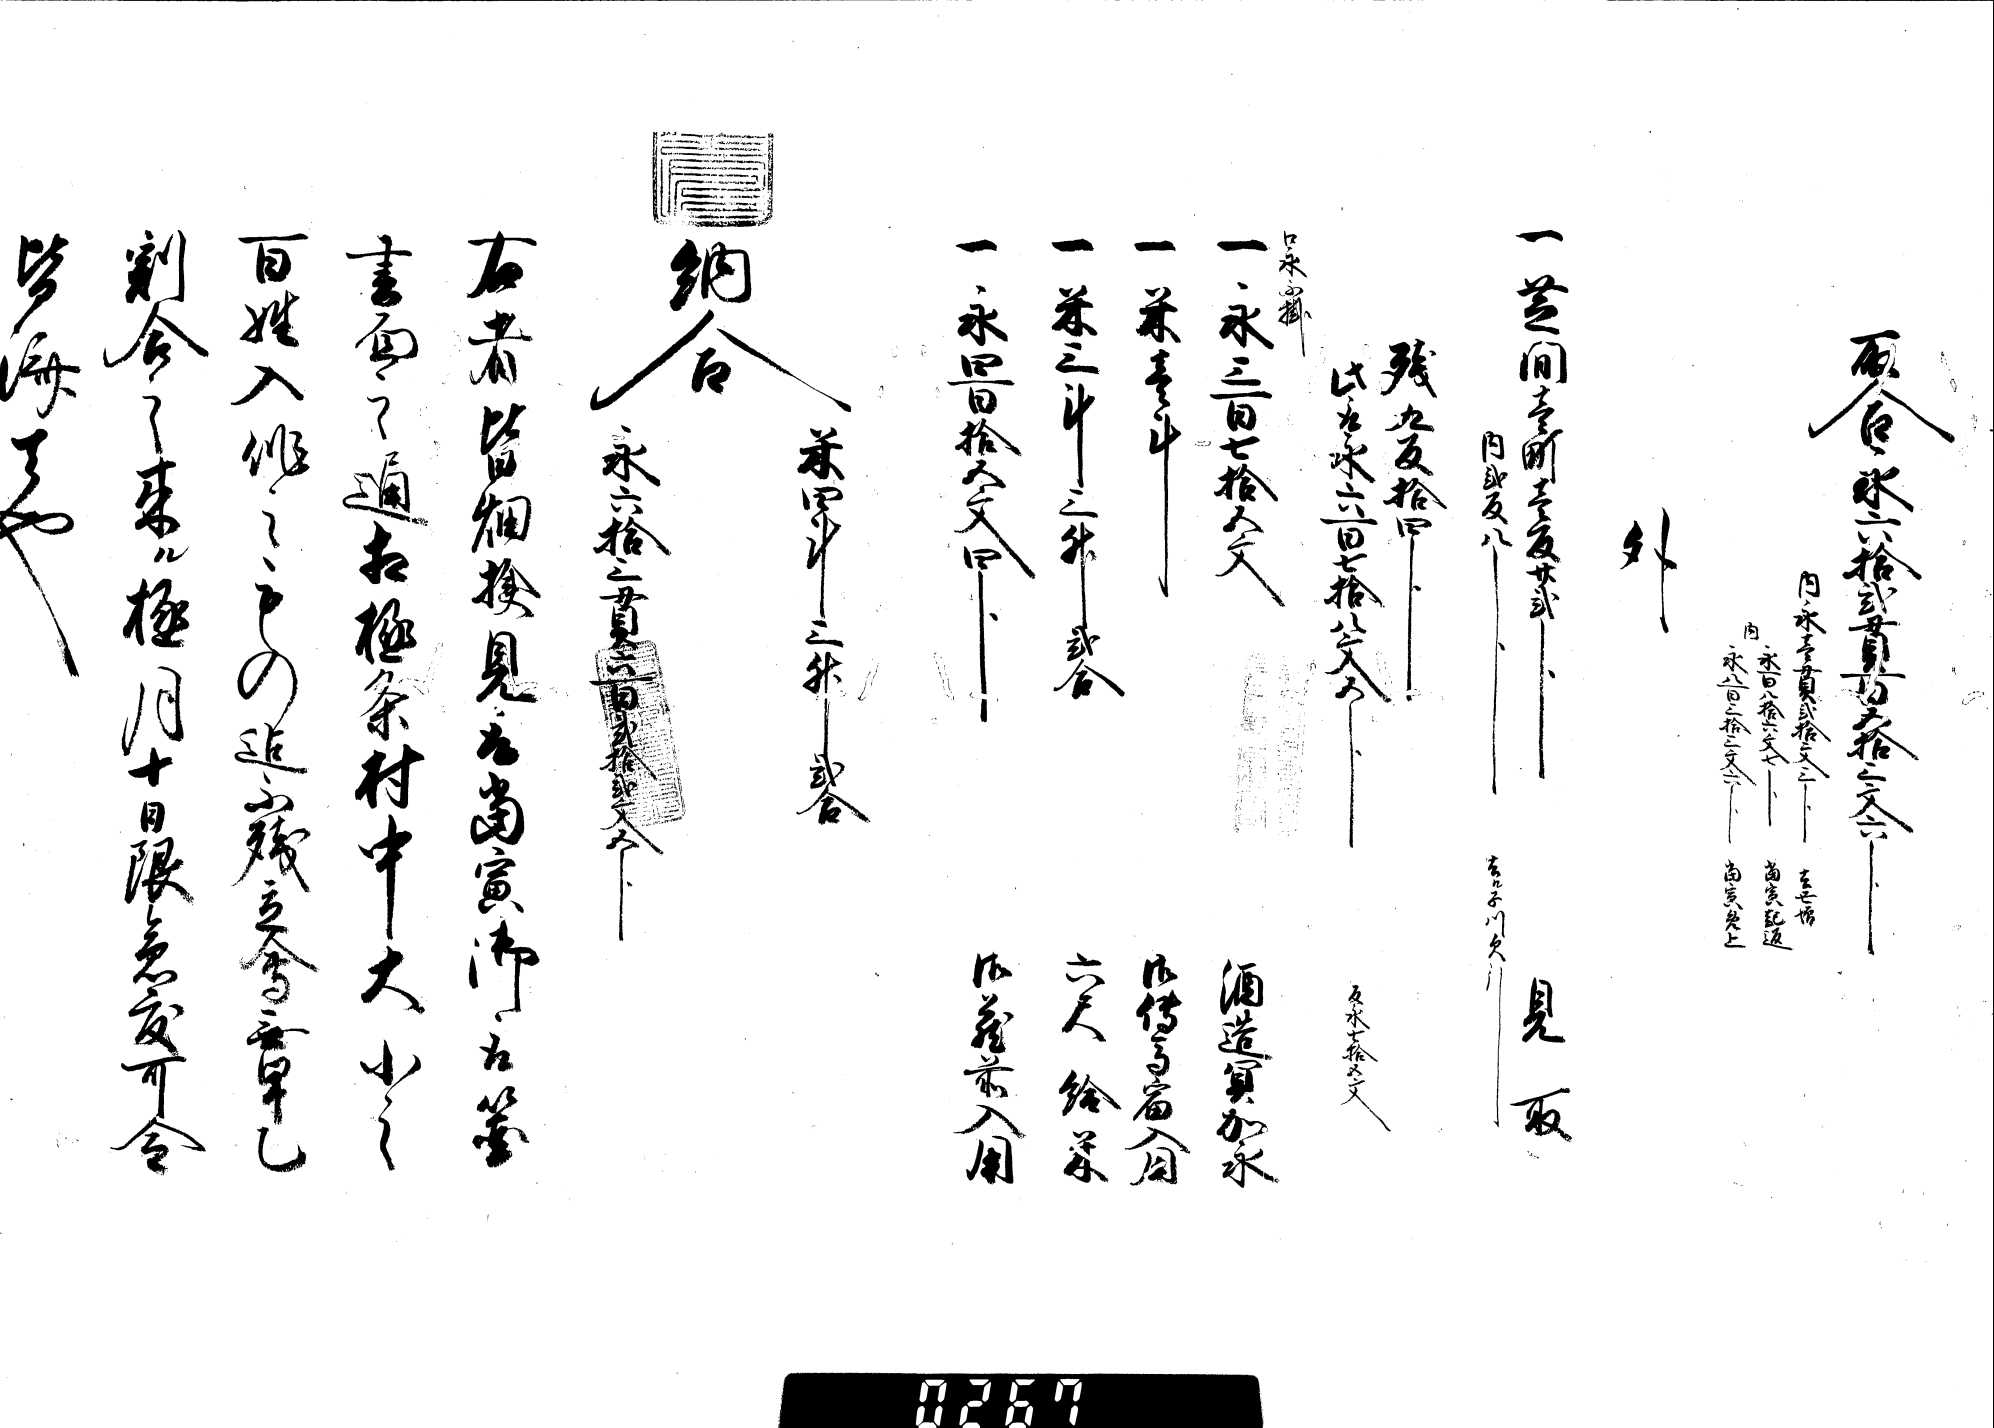 取合永六拾弐貫百五拾三文六分
内永壱貫弐拾文三分
内永百八拾六文七分 当寅起返
永八百三拾三文六分 当寅免上
外
一芝間壱町壱反廿弐歩 見取
内弐反八歩
残九反拾四歩
此取永六百七拾八文五分 反永七拾五文
口永不掛
一永三百七拾五文 酒造冥加永
一米壱斗 御伝馬宿入用
一米三斗三升弐合 六尺給米
一永四百拾五文四分 御蔵前入用
米四斗三升弐合
納合
永六拾三貫六百弐拾弐文五分
右者皆畑検見取当寅御取箇
書面之通相極条村中大小之
百姓入作之もの迄不残立会無甲乙
割合之来ル極月十日限急度可令
皆済もの也
0267